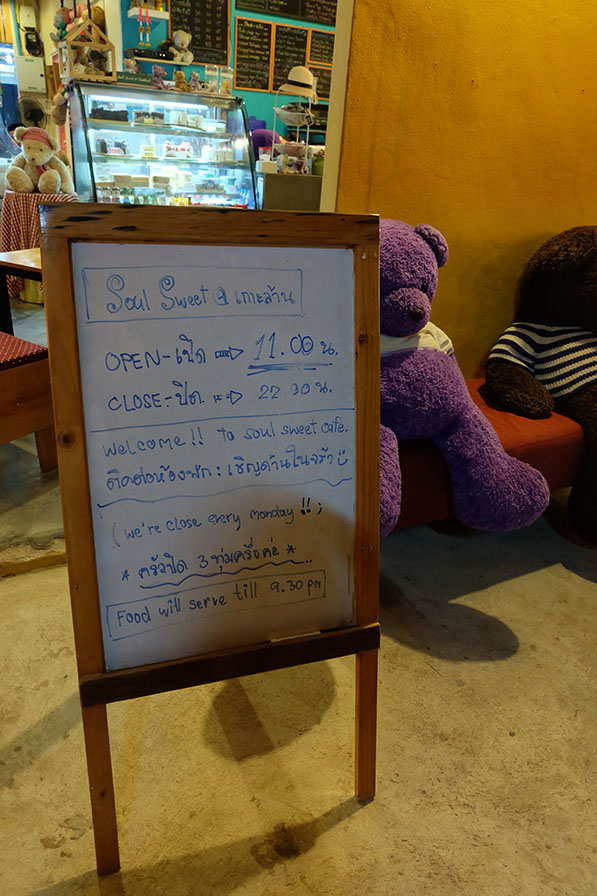 Soul Sweet @ เกาะล้าน
OPEN-เปิด ⇨ 11.00 น.
CLOSE-ปิด ⇨ 22.30 น.
Welcome!! to soul sweet cafe.
ติดต่อห้องพัก : เชิญด้านในจร้า
(we're close every monday !! ;
* ครัวปิด 3 ทุ่มครึ่งค่ะ *
Food will serve till 9.30 pm